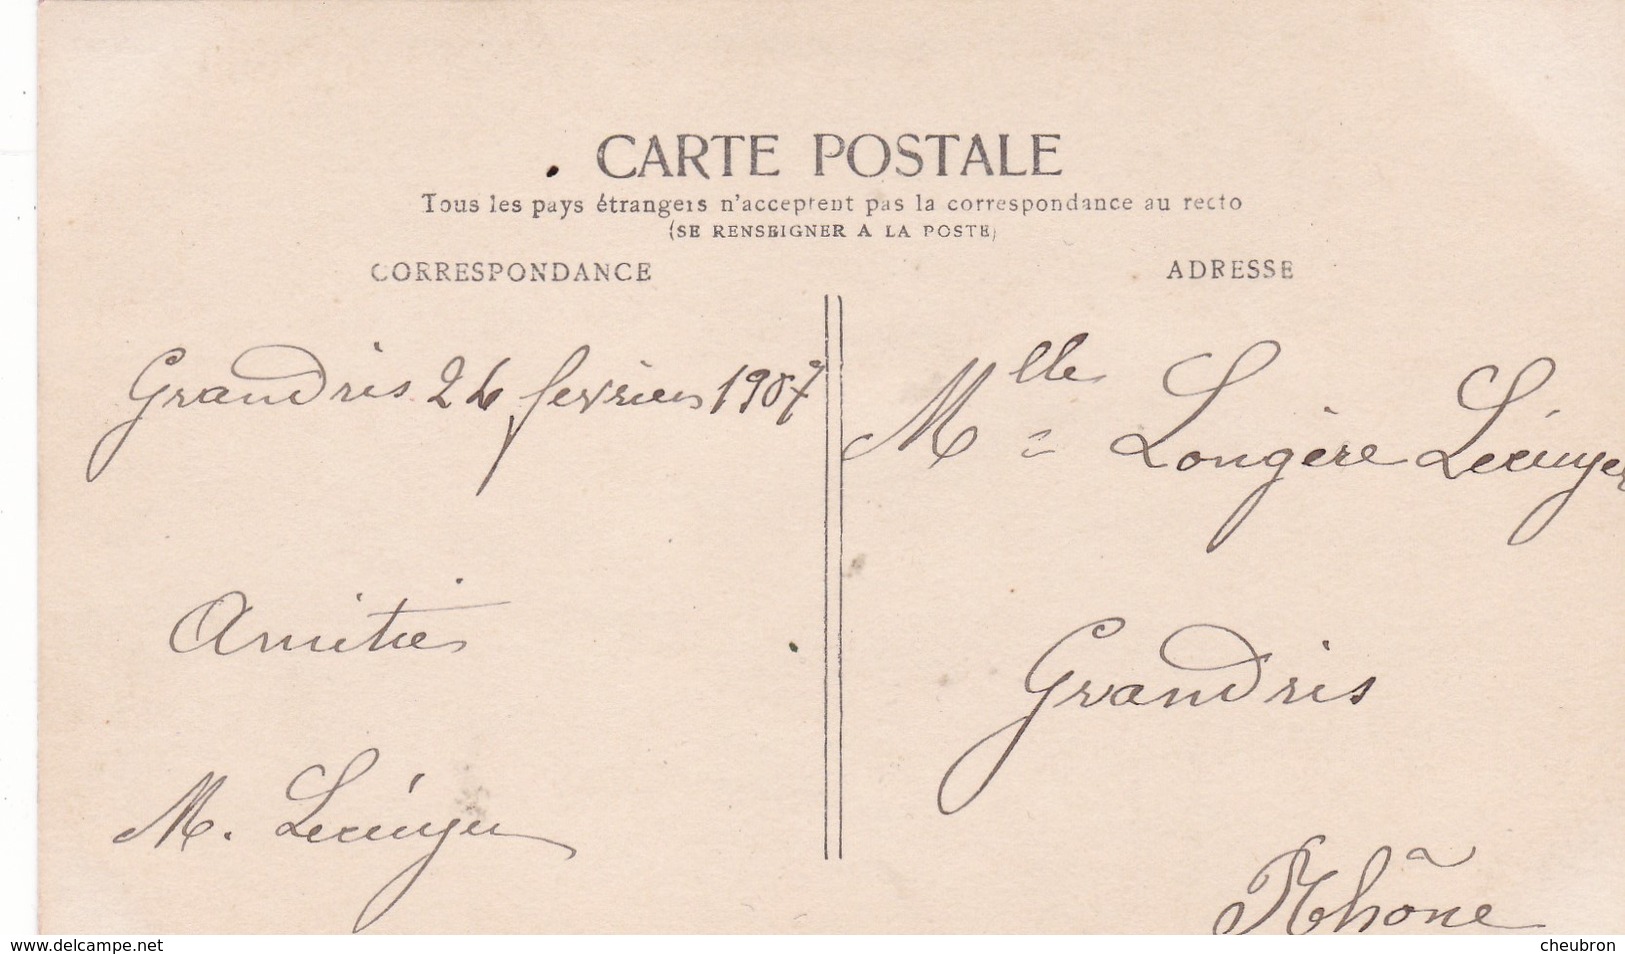 CARTE POSTALE
Tous les pays étrangers n'acceptent pas la correspondance au recto
(SE RENSEIGNER A LA POSTE)
CORRESPONDANCE
Grandris 26 fevrier 1907
Amitiés
M. Lécuyer
ADRESSE
Mlle Longère Lécuyer
Grandris
Rhône
www.delcampe.net
cheubron